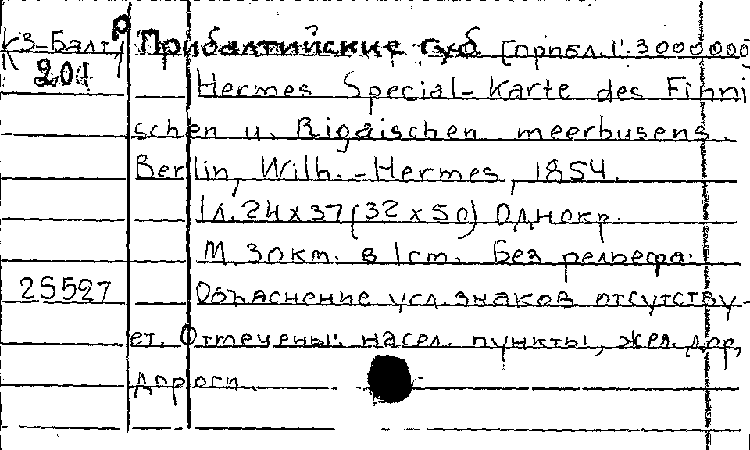 К3-Балт Р
201
Прибалтийские губ [прибл. 1:3000000]
Hermes Special-Karte des Finni
schen u. Rigaischen meerbusens.
Berlin, Wilh.-Hermes, 1854.
1л. 24х37 (32х50) Однокр.
М 30км. в 1ст. Без рельефа.
25527
Объяснение усл. знаков отсутству-
ет. Отмечены: насел. пункты, жел. дор,
дороги.